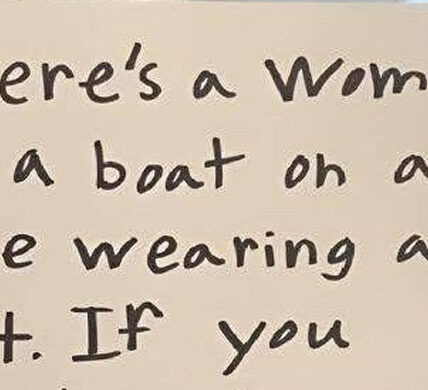 ere's a Wom
a boat on a
e wearing a
t. If you